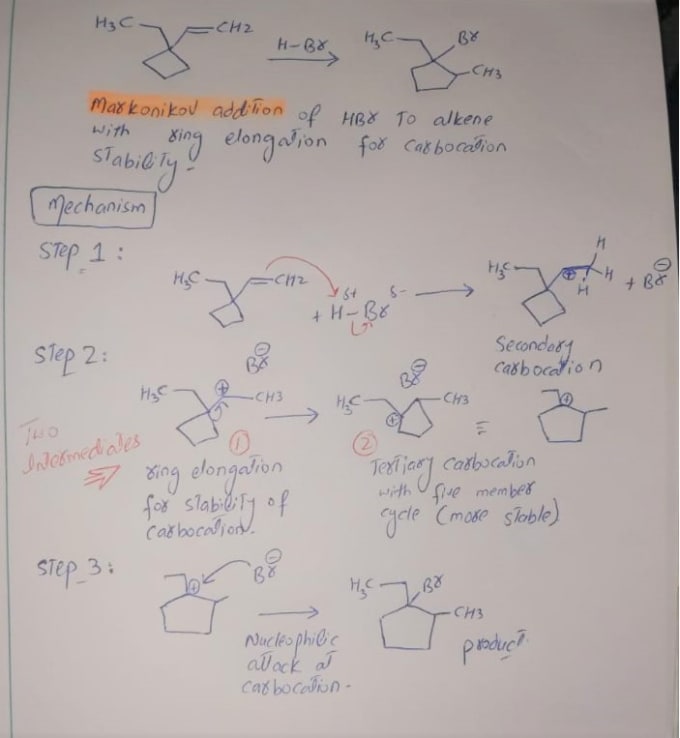 H3C CH2 H-Br H3C Br CH3
Markonikov addition of HBr To alkene
with ring elongation for carbocation
stability-
Mechanism
Step 1:
H3C CH2 + H-Br δ+ δ- H3C ⊕ H H H + Br⊖
Secondory
carbocation
Step 2:
H3C ⊕ CH3 Br⊖ H3C ⊕ CH3 Br⊖ ≡ ⊕
Two
Intermediates
① ②
ring elongation
for stability of
carbocation.
Tertiary carbocation
with five member
cycle (more stable)
Step 3:
⊕ Br⊖ H3C Br CH3
Nucleophilic
attack at
carbocation-
product.